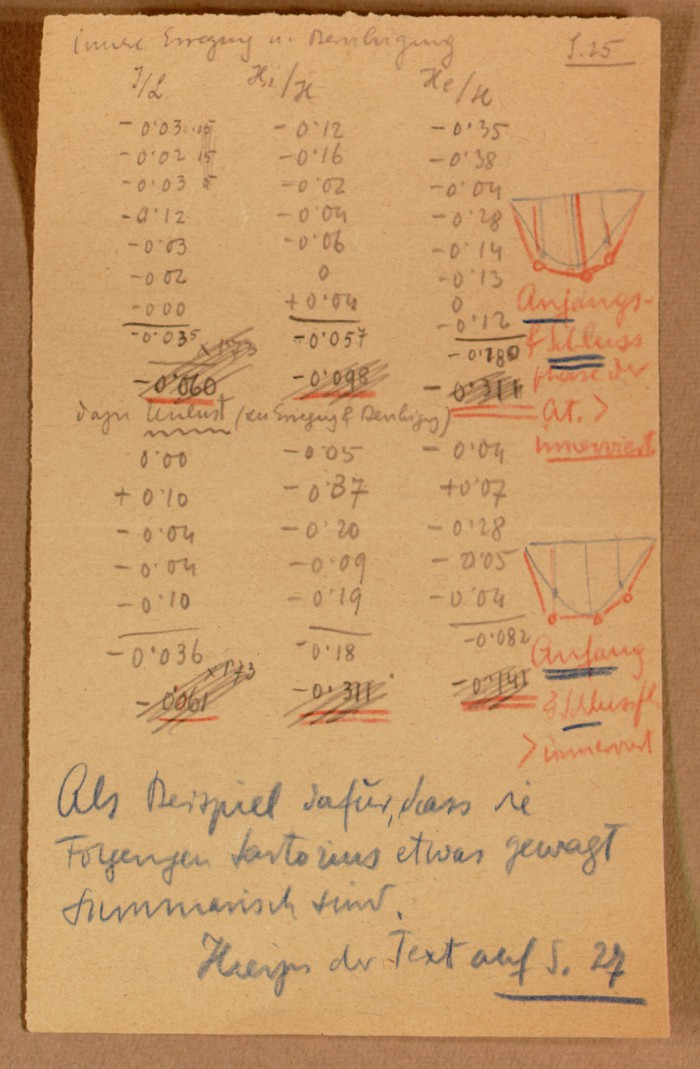 innere Erregung u. Beruhigung S. 25
J/L Hi/H He/H
-0·03 -0·12 -0·35
-0·02 -0·16 -0·38
-0·03 -0·02 -0·04
-0·12 -0·04 -0·28
-0·03 -0·06 -0·14
-0·02 0 -0·13
-0·00 +0·04 0
-0·12
-0·035 -0·057 -0·180
×1·73
-0·060 -0·098 -0·311
dazu Unlust (zu Erregung & Beruhigung)
0·00 -0·05 -0·04
+0·10 -0·37 +0·07
-0·04 -0·20 -0·28
-0·04 -0·09 -0·05
-0·10 -0·19 -0·04
-0·036 -0·18 -0·082
×1·73
-0·061 -0·311 -0·141
Anfangs-
& Schluss
phase der
At. >
innerviert
Anfang
& Schlussph
> innerviert
Als Beispiel dafür, dass die
Folgerungen Sartorius etwas gewagt
summarisch sind.
Hierzu der Text auf S. 27